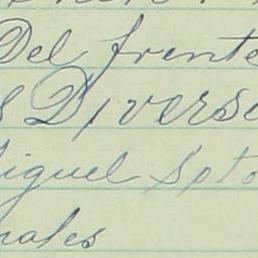 Del frente
Diverso
iguel Soto
nales